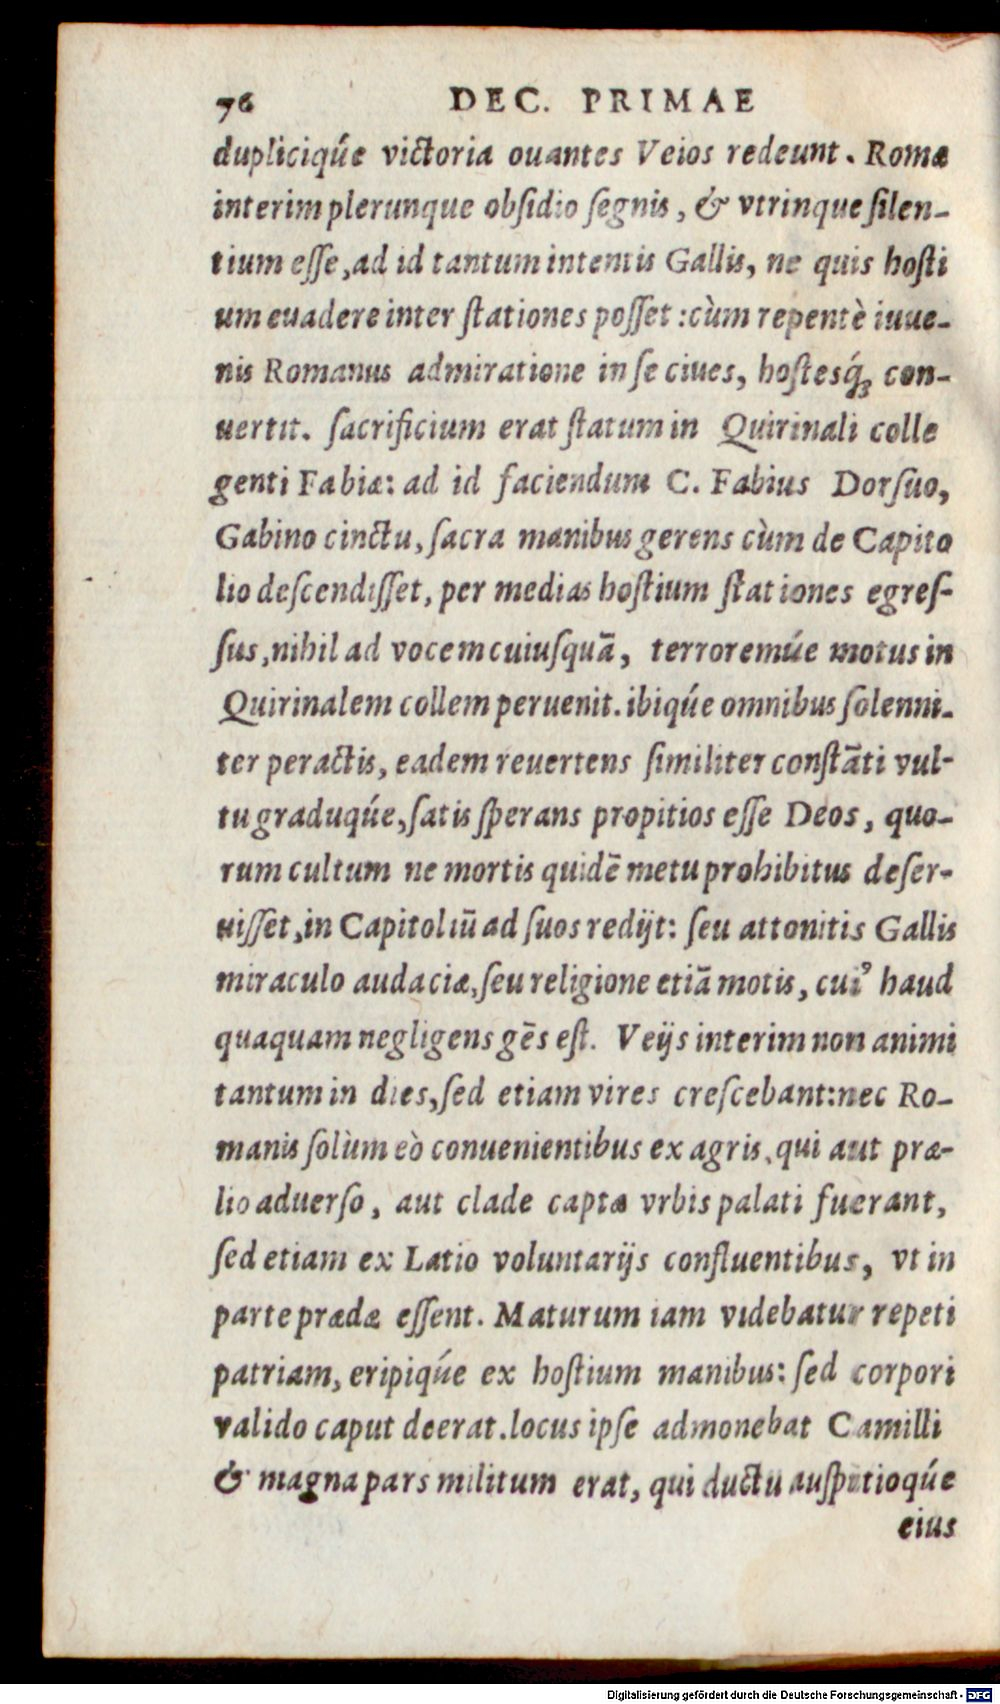 76 DEC. PRIMAE
dupliciq́ue victoria ouantes Veios redeunt. Romæ
interim plerunque obſidio ſegnis, & vtrinque ſilen-
tium eſſe, ad id tantum intentis Gallis, ne quis hoſti
um euadere inter ſtationes poſſet: cùm repentè iuue-
nis Romanus admiratione in ſe ciues, hoſtesq́ꝫ con-
uertit. ſacrificium erat ſtatum in Quirinali colle
genti Fabiæ: ad id faciendum C. Fabius Dorſuo,
Gabino cinctu, ſacra manibus gerens cùm de Capito
lio deſcendiſſet, per medias hoſtium ſtationes egreſ-
ſus, nihil ad vocem cuiuſquā, terroremúe motus in
Quirinalem collem peruenit. ibiq́ue omnibus ſolenni-
ter peractis, eadem reuertens ſimiliter conſtāti vul-
tu graduq́ue, ſatis ſperans propitios eſſe Deos, quo-
rum cultum ne mortis quidē metu prohibitus deſer-
uiſſet, in Capitoliū ad ſuos redijt: ſeu attonitis Gallis
miraculo audaciæ, ſeu religione etiā motis, cui⁹ haud
quaquam negligens gēs eſt. Veijs interim non animi
tantum in dies, ſed etiam vires creſcebant: nec Ro-
manis ſolùm eò conuenientibus ex agris, qui aut præ-
lio aduerſo, aut clade captæ vrbis palati fuerant,
ſed etiam ex Latio voluntarijs confluentibus, vt in
parte prædæ eſſent. Maturum iam videbatur repeti
patriam, eripiq́ue ex hoſtium manibus: ſed corpori
valido caput deerat. locus ipſe admonebat Camilli
& magna pars militum erat, qui ductu auſpitioq́ue
eius
Digitalisierung gefördert durch die Deutsche Forschungsgemeinschaft - DFG